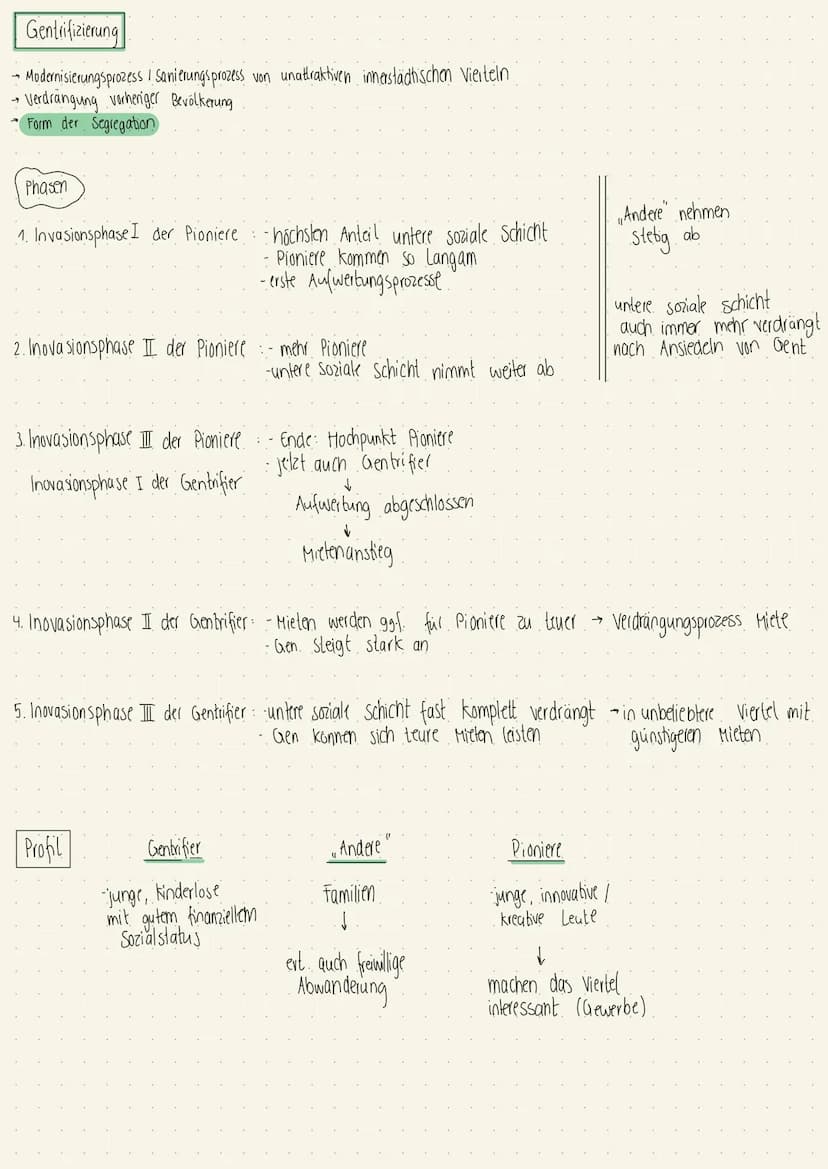 Gentrifizierung
→ Modernisierungsprozess / Sanierungsprozess von unattraktiven innerstädtischen Vierteln
→ Verdrängung vorheriger Bevölkerung
→ Form der Segregation
Phasen
1. Invasionsphase I der Pioniere : - höchsten Anteil untere soziale Schicht
- Pioniere kommen so Langam
- erste Aufwertungsprozesse
„Andere" nehmen
stetig ab
untere soziale schicht
auch immer mehr verdrängt
nach Ansiedeln von Gent
2. Inovasionsphase II der Pioniere : - mehr Pioniere
- untere soziale Schicht nimmt weiter ab
3. Inovasionsphase III der Pioniere : - Ende: Hochpunkt Pioniere
- jetzt auch Gentrifier
Inovasionsphase I der Gentrifier
↓
Aufwertung abgeschlossen
↓
Mietenanstieg
4. Inovasionsphase II der Gentrifier: - Mieten werden ggf. für Pioniere zu teuer → Verdrängungsprozess Miete
- Gen. steigt stark an
5. Inovasionsphase III der Gentrifier : - untere soziale Schicht fast komplett verdrängt → in unbeliebtere Viertel mit
günstigeren Mieten
- Gen können sich teure Mieten leisten
Profil
Gentrifier
- junge, kinderlose
mit gutem finanziellem
Sozialstatus
„Andere"
Familien
↓
evt. auch freiwillige
Abwanderung
Pioniere
- junge, innovative /
kreative Leute
↓
machen das Viertel
interessant (Gewerbe)